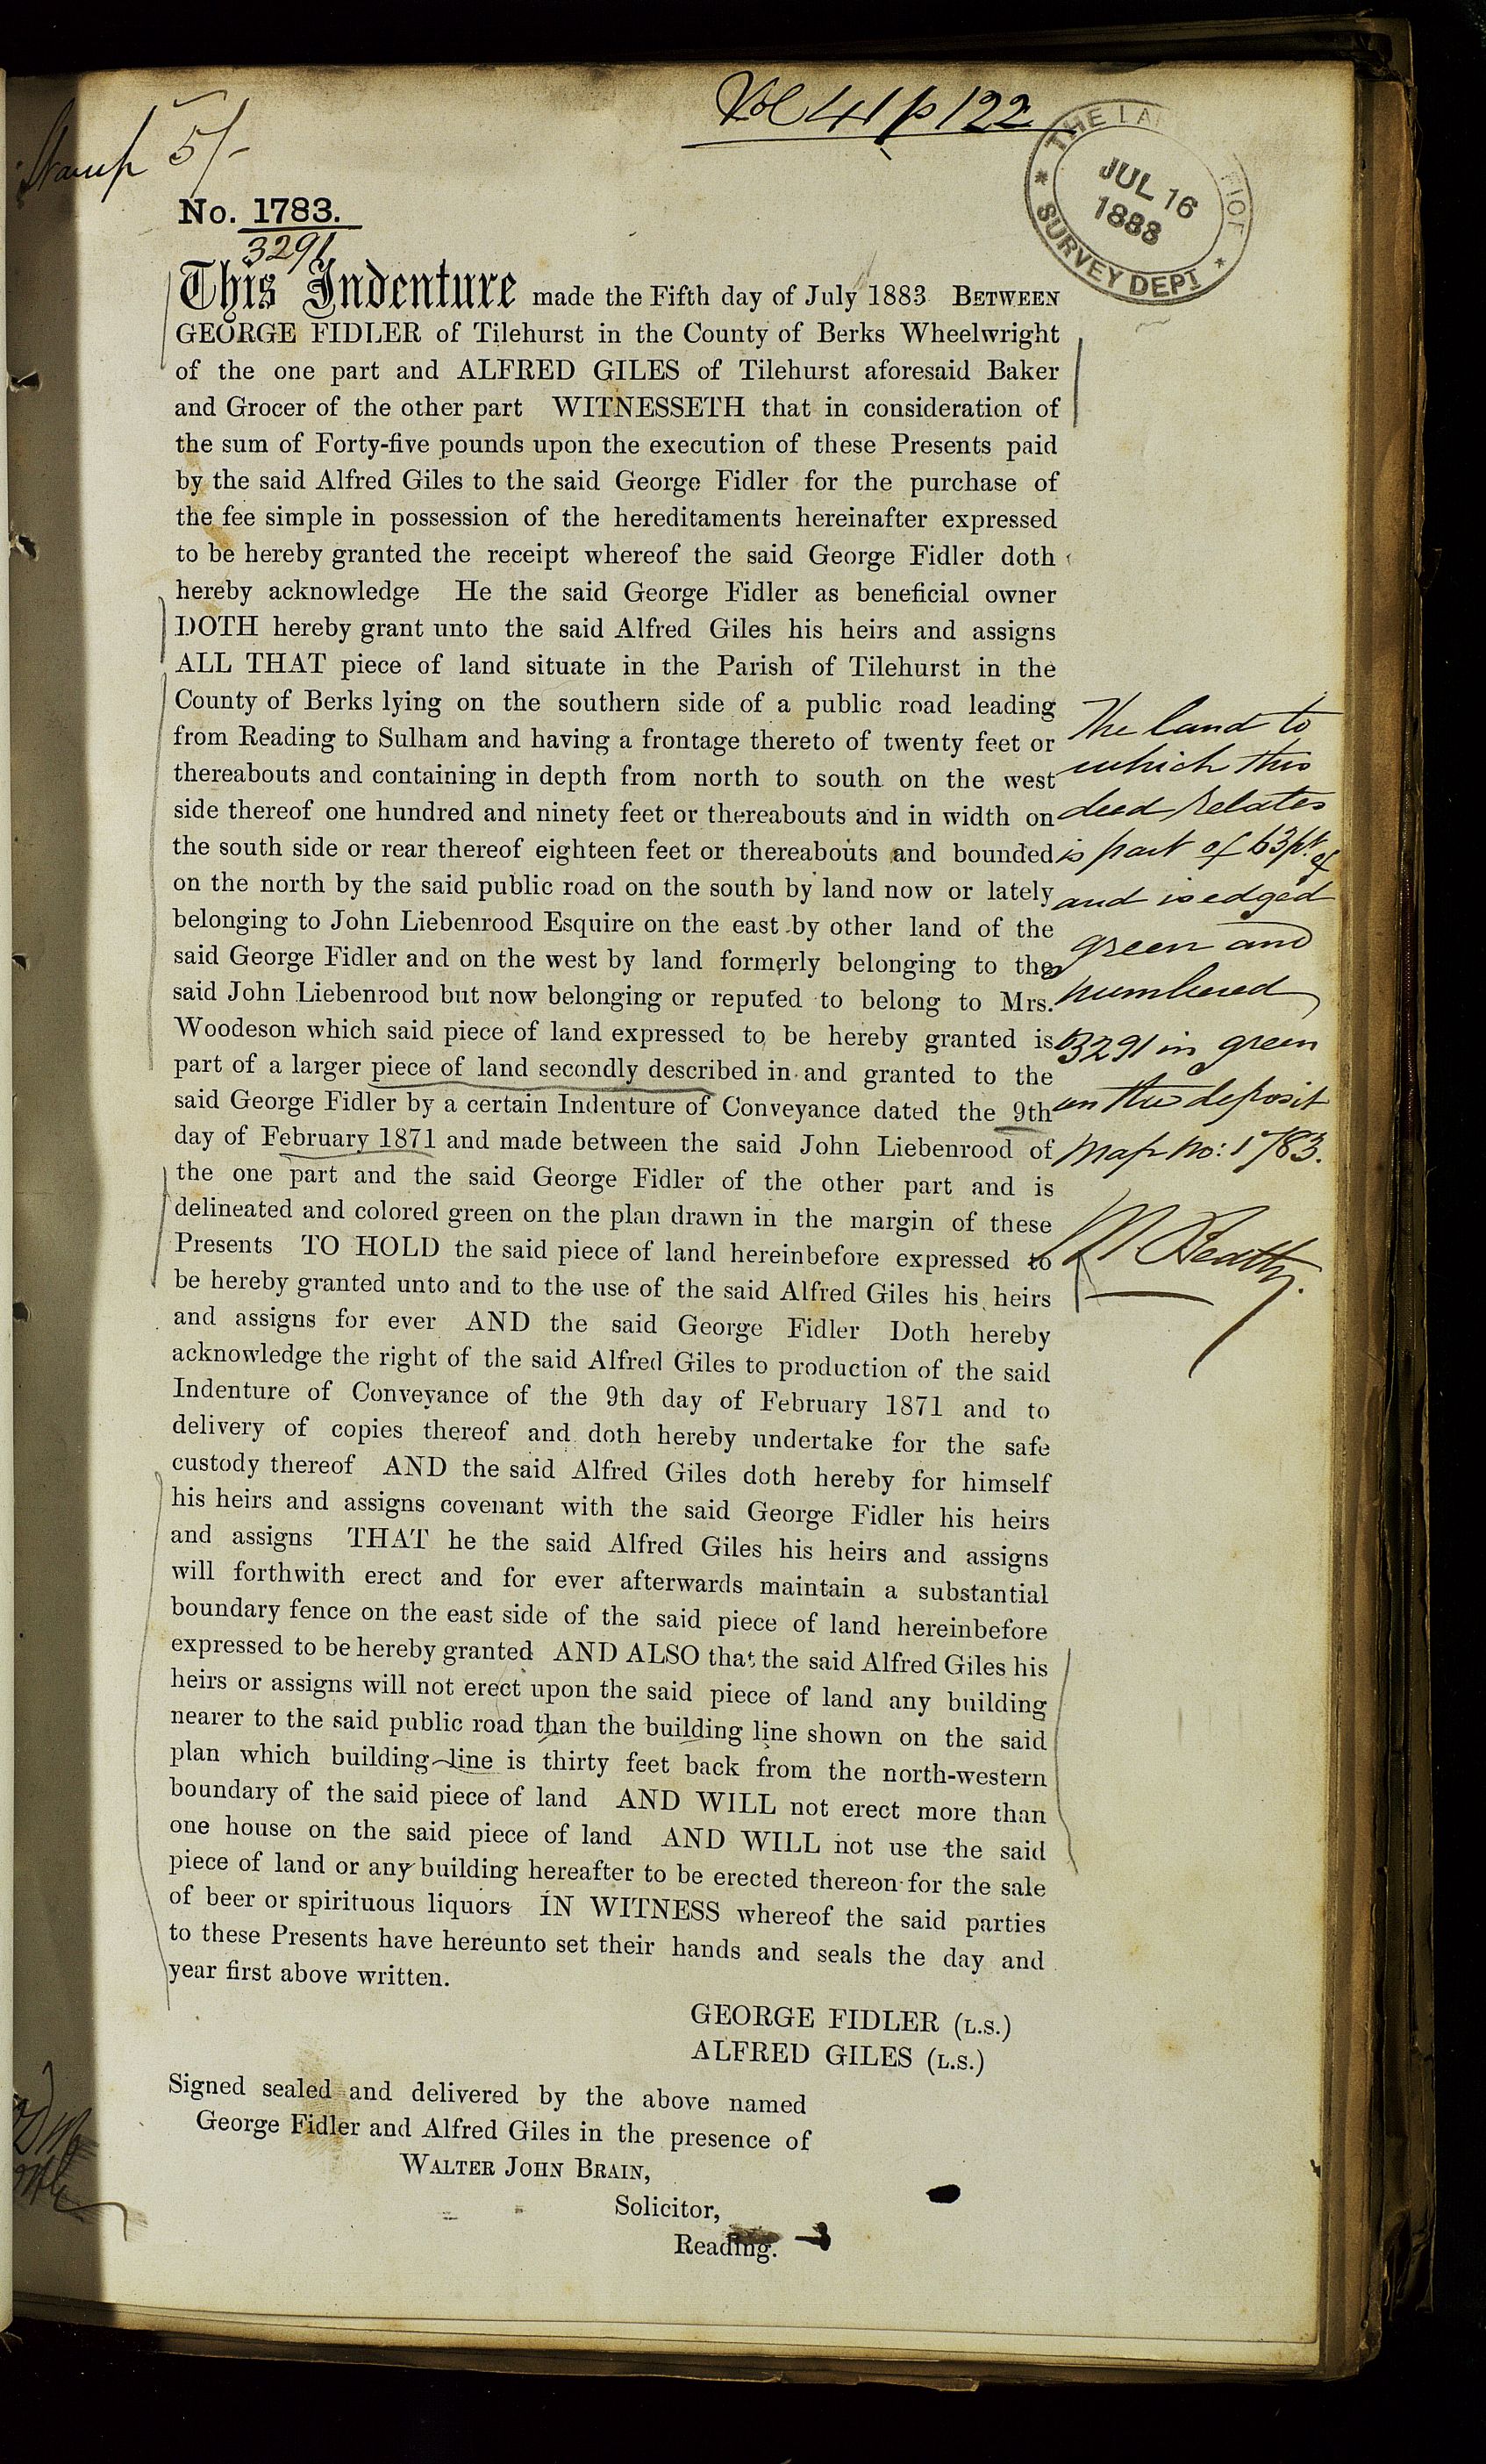 Vol 41 p 122
Stamp 5/-
THE LA FICE
JUL 16
1888
* SURVEY DEPT *
No. 1783.
3291
This Indenture made the Fifth day of July 1883 BETWEEN
GEORGE FIDLER of Tilehurst in the County of Berks Wheelwright
of the one part and ALFRED GILES of Tilehurst aforesaid Baker
and Grocer of the other part WITNESSETH that in consideration of
the sum of Forty-five pounds upon the execution of these Presents paid
by the said Alfred Giles to the said George Fidler for the purchase of
the fee simple in possession of the hereditaments hereinafter expressed
to be hereby granted the receipt whereof the said George Fidler doth
hereby acknowledge He the said George Fidler as beneficial owner
DOTH hereby grant unto the said Alfred Giles his heirs and assigns
ALL THAT piece of land situate in the Parish of Tilehurst in the
County of Berks lying on the southern side of a public road leading
from Reading to Sulham and having a frontage thereto of twenty feet or
thereabouts and containing in depth from north to south on the west
side thereof one hundred and ninety feet or thereabouts and in width on
the south side or rear thereof eighteen feet or thereabouts and bounded
on the north by the said public road on the south by land now or lately
belonging to John Liebenrood Esquire on the east by other land of the
said George Fidler and on the west by land formerly belonging to the
said John Liebenrood but now belonging or reputed to belong to Mrs.
Woodeson which said piece of land expressed to be hereby granted is
part of a larger piece of land secondly described in and granted to the
said George Fidler by a certain Indenture of Conveyance dated the 9th
day of February 1871 and made between the said John Liebenrood of
the one part and the said George Fidler of the other part and is
delineated and colored green on the plan drawn in the margin of these
Presents TO HOLD the said piece of land hereinbefore expressed to
be hereby granted unto and to the use of the said Alfred Giles his heirs
and assigns for ever AND the said George Fidler Doth hereby
acknowledge the right of the said Alfred Giles to production of the said
Indenture of Conveyance of the 9th day of February 1871 and to
delivery of copies thereof and doth hereby undertake for the safe
custody thereof AND the said Alfred Giles doth hereby for himself
his heirs and assigns covenant with the said George Fidler his heirs
and assigns THAT he the said Alfred Giles his heirs and assigns
will forthwith erect and for ever afterwards maintain a substantial
boundary fence on the east side of the said piece of land hereinbefore
expressed to be hereby granted AND ALSO that the said Alfred Giles his
heirs or assigns will not erect upon the said piece of land any building
nearer to the said public road than the building line shown on the said
plan which building line is thirty feet back from the north-western
boundary of the said piece of land AND WILL not erect more than
one house on the said piece of land AND WILL not use the said
piece of land or any building hereafter to be erected thereon for the sale
of beer or spirituous liquors IN WITNESS whereof the said parties
to these Presents have hereunto set their hands and seals the day and
year first above written.
GEORGE FIDLER (L.S.)
ALFRED GILES (L.S.)
Signed sealed and delivered by the above named
George Fidler and Alfred Giles in the presence of
WALTER JOHN BRAIN,
Solicitor,
Reading.
The land to
which this
deed relates
is part of 63 pt. of
and is edged
green and
numbered
3291 in green
on the deposit
map no: 1783.
M Beatty.